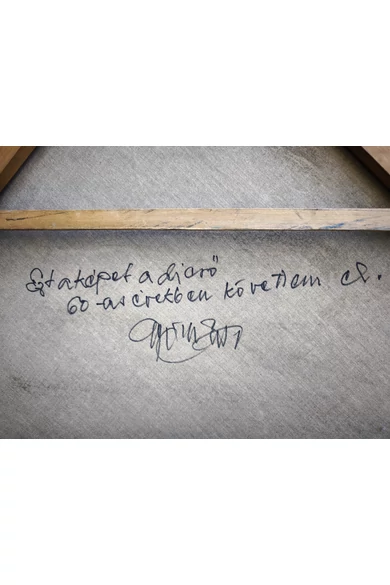 Ezt a képet a dicső
60-as években követtem el.